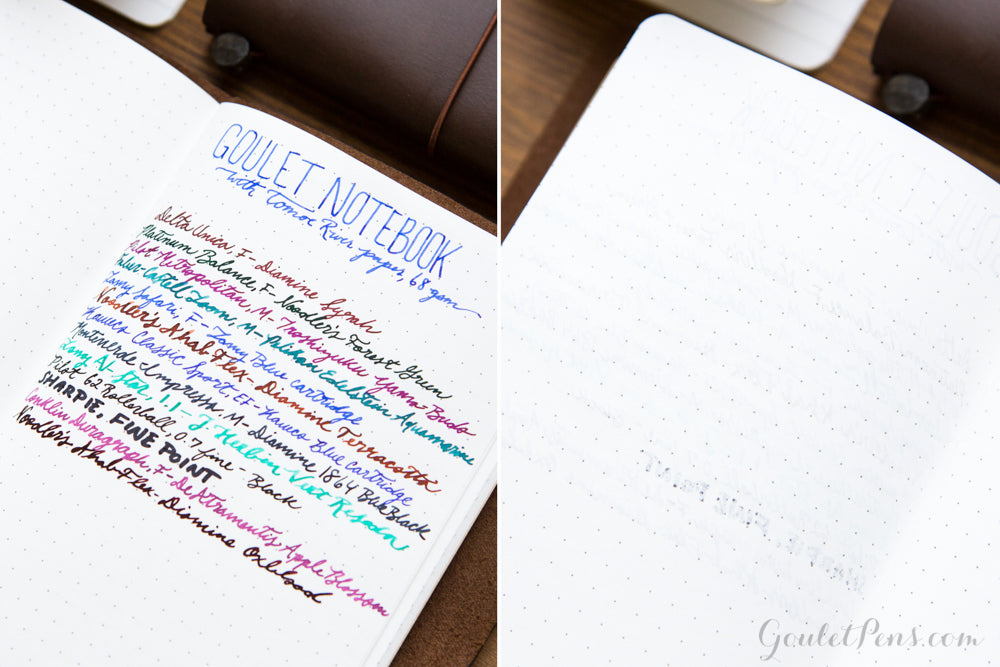 GOULET NOTEBOOK
with Tomoe River paper, 68 gsm
Delta Unica, F- Diamine Syrah
Platinum Balance, F- Noodler's Forest Green
Pilot Metropolitan, M- Troshiyuku yama-Budo
Faber-Castell Loom, M- Pelikan Edelstein Aquamarine
Lamy Safari, F- Lamy Blue cartridge
Noodler's Ahab Flex- Diamine Terracotta
Kaweco Classic Sport, EF- Kaweco Blue Cartridge
Monteverde Impressa, M- Diamine 1864 Blue Black
Lamy Al-Star, 1.1- J. Herbin Vert Reseda
Pilot G2 Rollerball 0.7 fine- Black
SHARPIE, FINE POINT
Conklin Duragraph, F- DeAtramentis Apple Blossom
Noodler's Ahab Flex- Diamine Oxblood
SHARPIE, FINE POINT
GouletPens.com